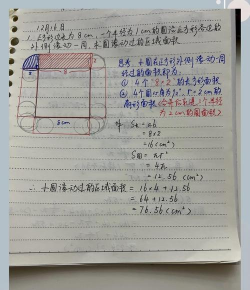 12月16日
1. 正方形边长为8cm,一个半径为1cm的圆沿正方形各边的
外侧滚动一周,求圆滚动过的区域面积
思考:小圆在正方形外侧滚动一周
滚过的面积即为:
① 4个"8×2"的长方形面积
② 4个圆心角为90°,r=2cm的
扇形面积
为2cm的圆面积)
8
2
8cm
解: S长=ab
=8×2
=16(cm²)
S圆=πr²
=4π
=12.56(cm²)
∴ 小圆滚动过的区域面积=16×4+12.56
=64+12.56
=76.56(cm²)